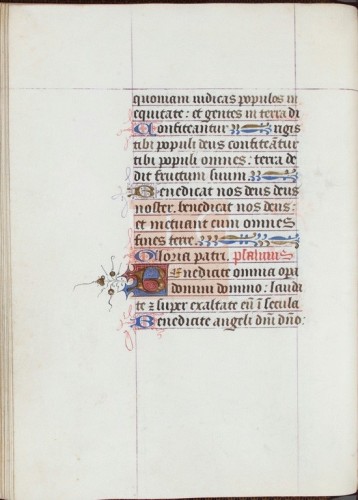 quoniam iudicas populos in
equitate: et gentes in terra di
Confiteantur rigis
tibi populi deus confiteātur
tibi populi omnes: terra de
dit fructum suum.
Benedicat nos deus deus
noster, benedicat nos deus:
et metuant eum omnes
fines terre.
Gloria patri. psalmus
Benedicite omnia opa
domini domino: laudi
te ⁊ super exaltate eū ī secula
Benedicite angeli dnī dn̄o: